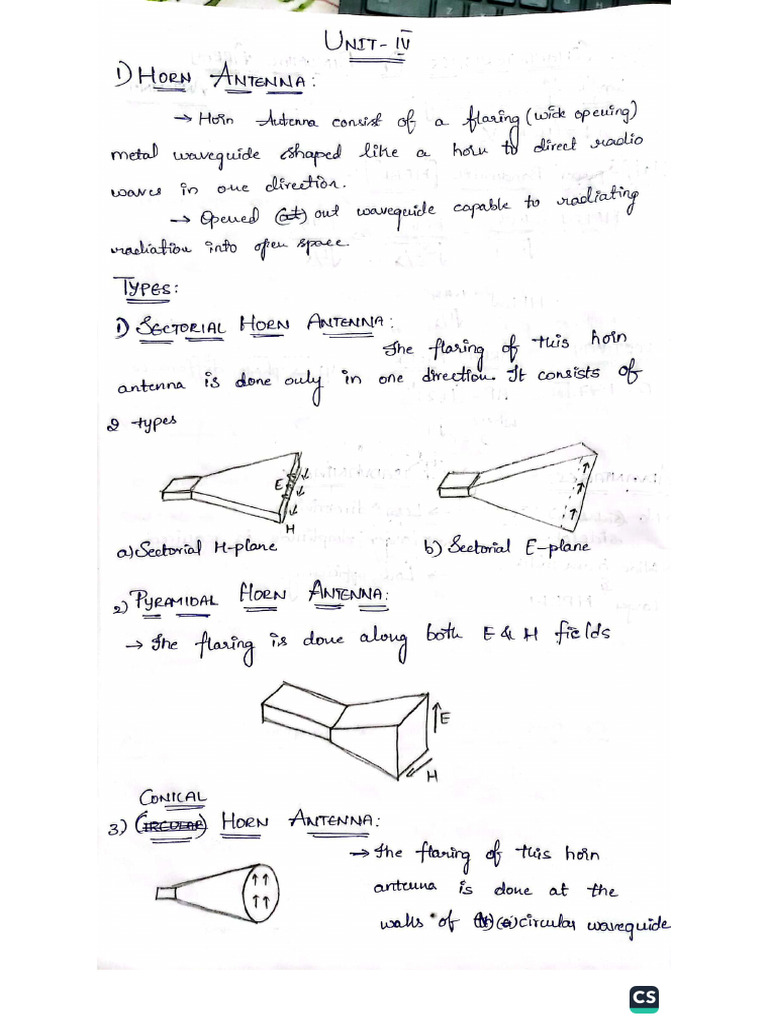 UNIT-IV
1) HORN ANTENNA:
→ Horn Antenna consist of a flaring (wide opening)
metal waveguide shaped like a horn to direct radio
waves in one direction.
→ Opened (at) out waveguide capable to radiating
radiation into open space.
TYPES:
1) SECTORIAL HORN ANTENNA:
The flaring of this horn
antenna is done only in one direction. It consists of
2 types
E
H
a) Sectorial H-plane
b) Sectorial E-plane
2) PYRAMIDAL HORN ANTENNA:
→ The flaring is done along both E & H fields
E
H
CONICAL
3) (CIRCULAR) HORN ANTENNA:
→ The flaring of this horn
antenna is done at the
walls of circular waveguide
CS